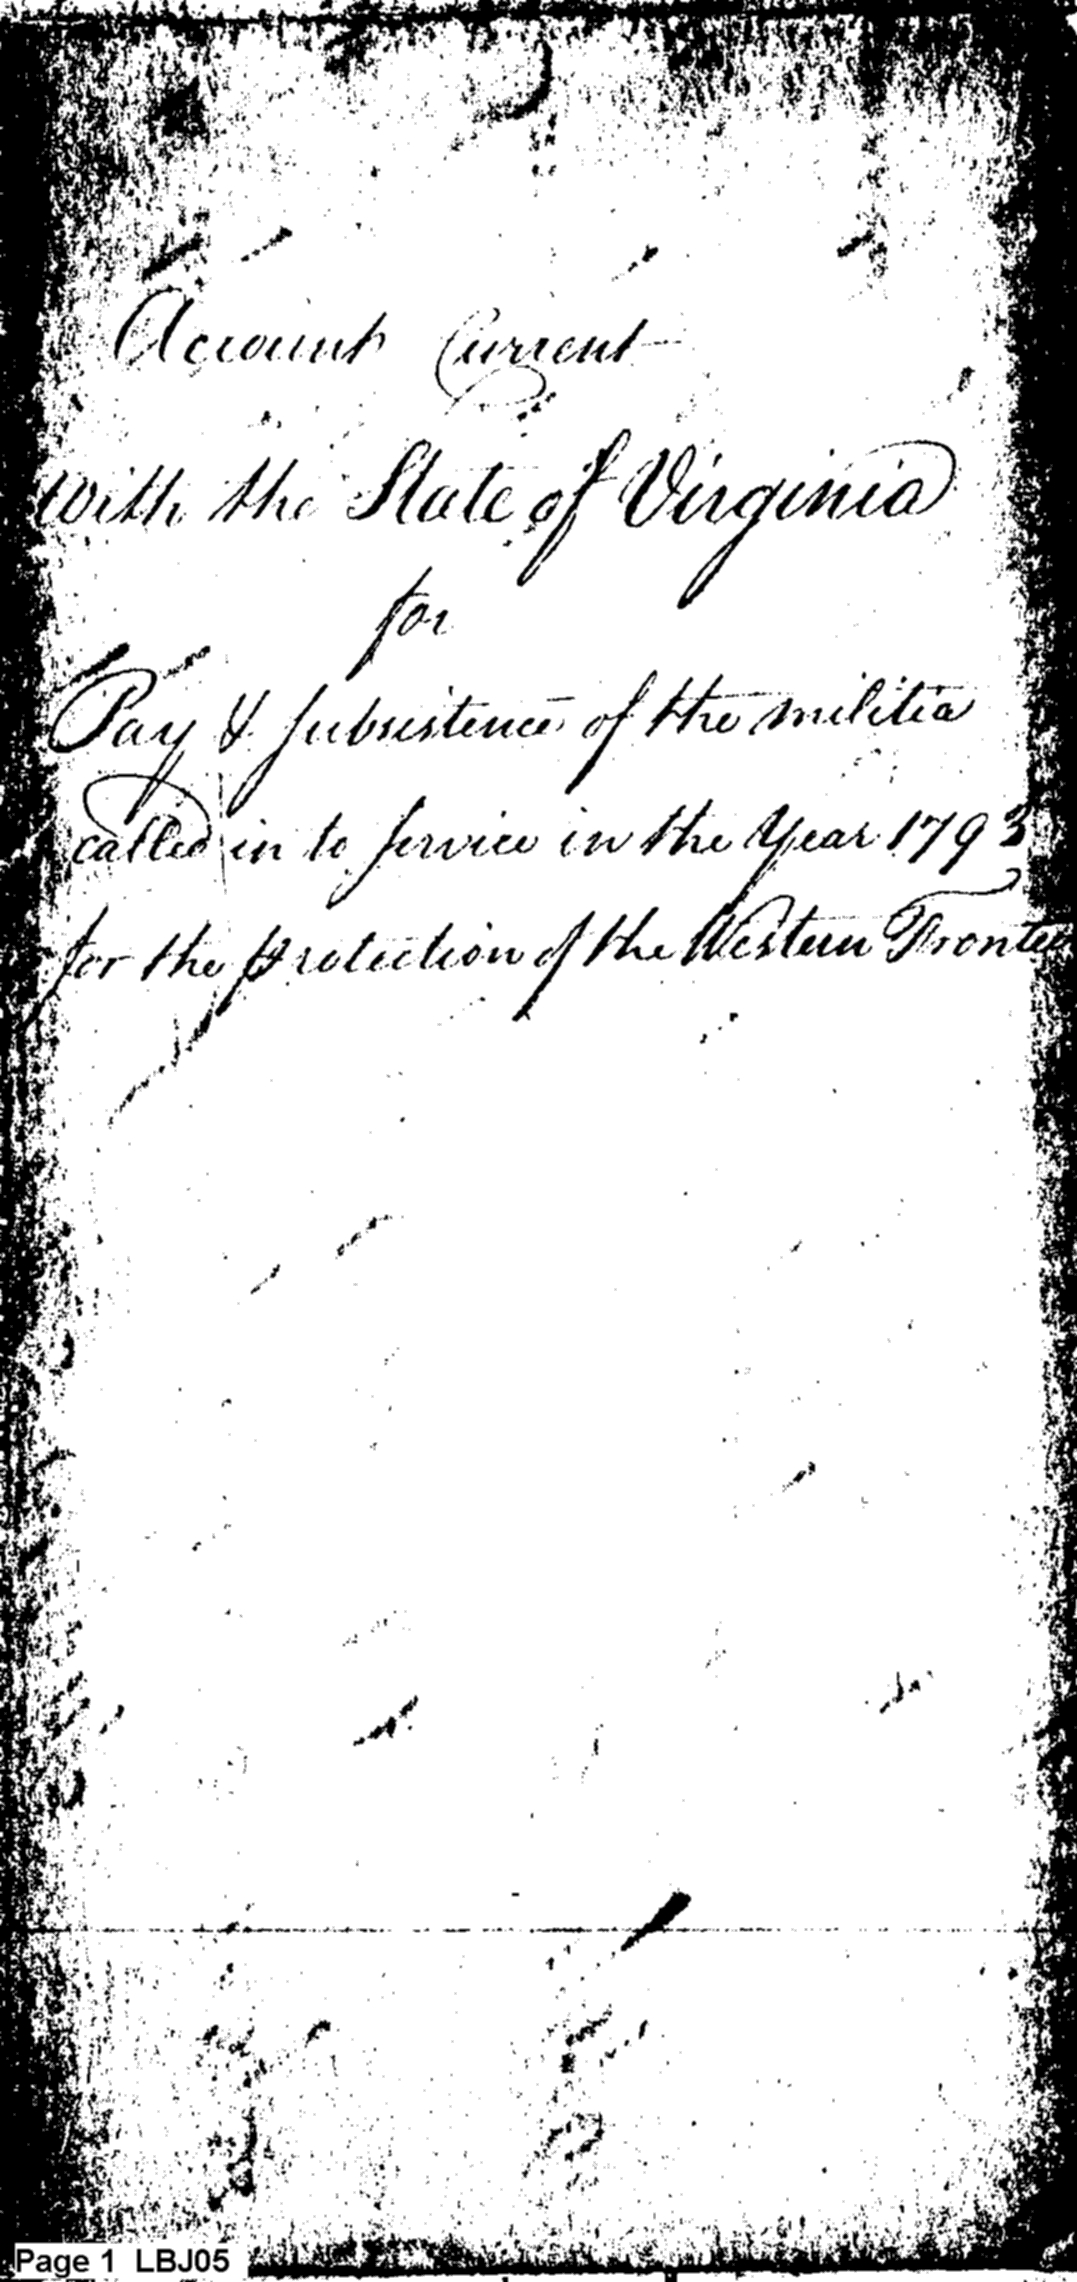 Account Current
with the State of Virginia
for
Pay & Subsistence of the militia
called in to Service in the Year 1793
for the protection of the Western Frontee
Page 1 LBJ05